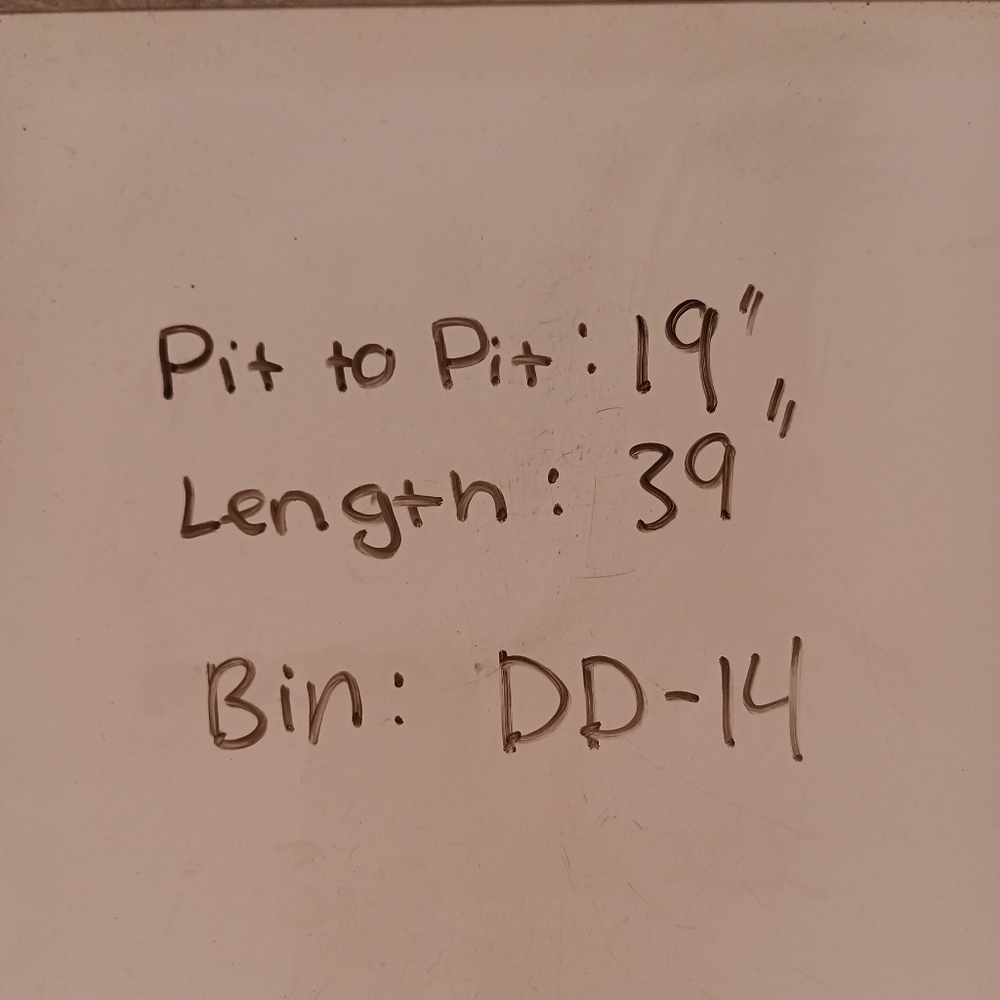 Pit to Pit: 19"
Length: 39"
Bin: DD-14